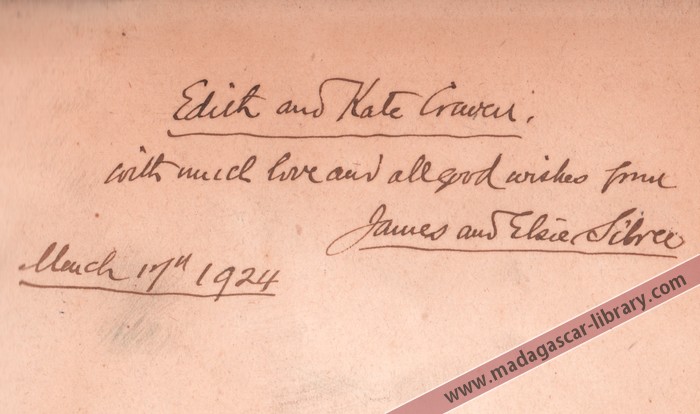 Edith and Kate Craven.
with much love and all good wishes from
James and Elsie Sibree
March 17th 1924
www.madagascar-library.com